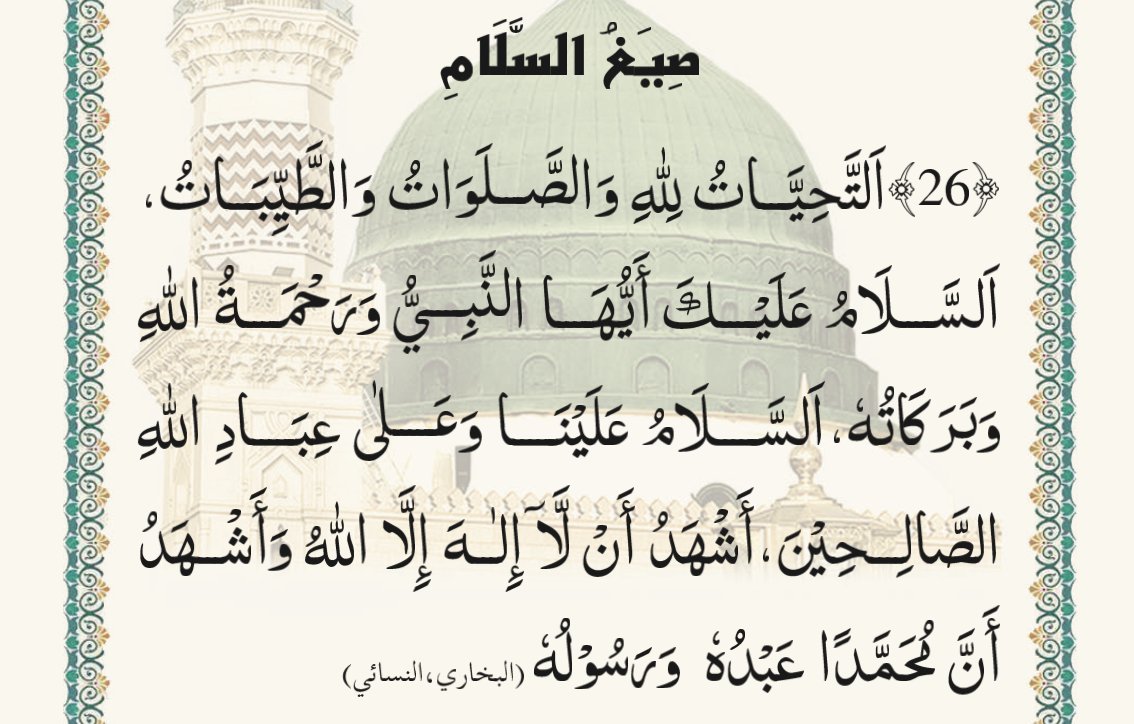 صِيَغُ السَّلَامِ
﴿26﴾ اَلتَّحِيَّاتُ لِلّٰهِ وَالصَّلَوَاتُ وَالطَّيِّبَاتُ،
اَلسَّلَامُ عَلَيْكَ أَيُّهَا النَّبِيُّ وَرَحْمَةُ اللّٰهِ
وَبَرَكَاتُهٗ، اَلسَّلَامُ عَلَيْنَا وَعَلٰى عِبَادِ اللّٰهِ
الصَّالِحِيْنَ، أَشْهَدُ أَنْ لَّآ إِلٰهَ إِلَّا اللّٰهُ وَأَشْهَدُ
أَنَّ مُحَمَّدًا عَبْدُهٗ وَرَسُوْلُهٗ (البخاري، النسائي)